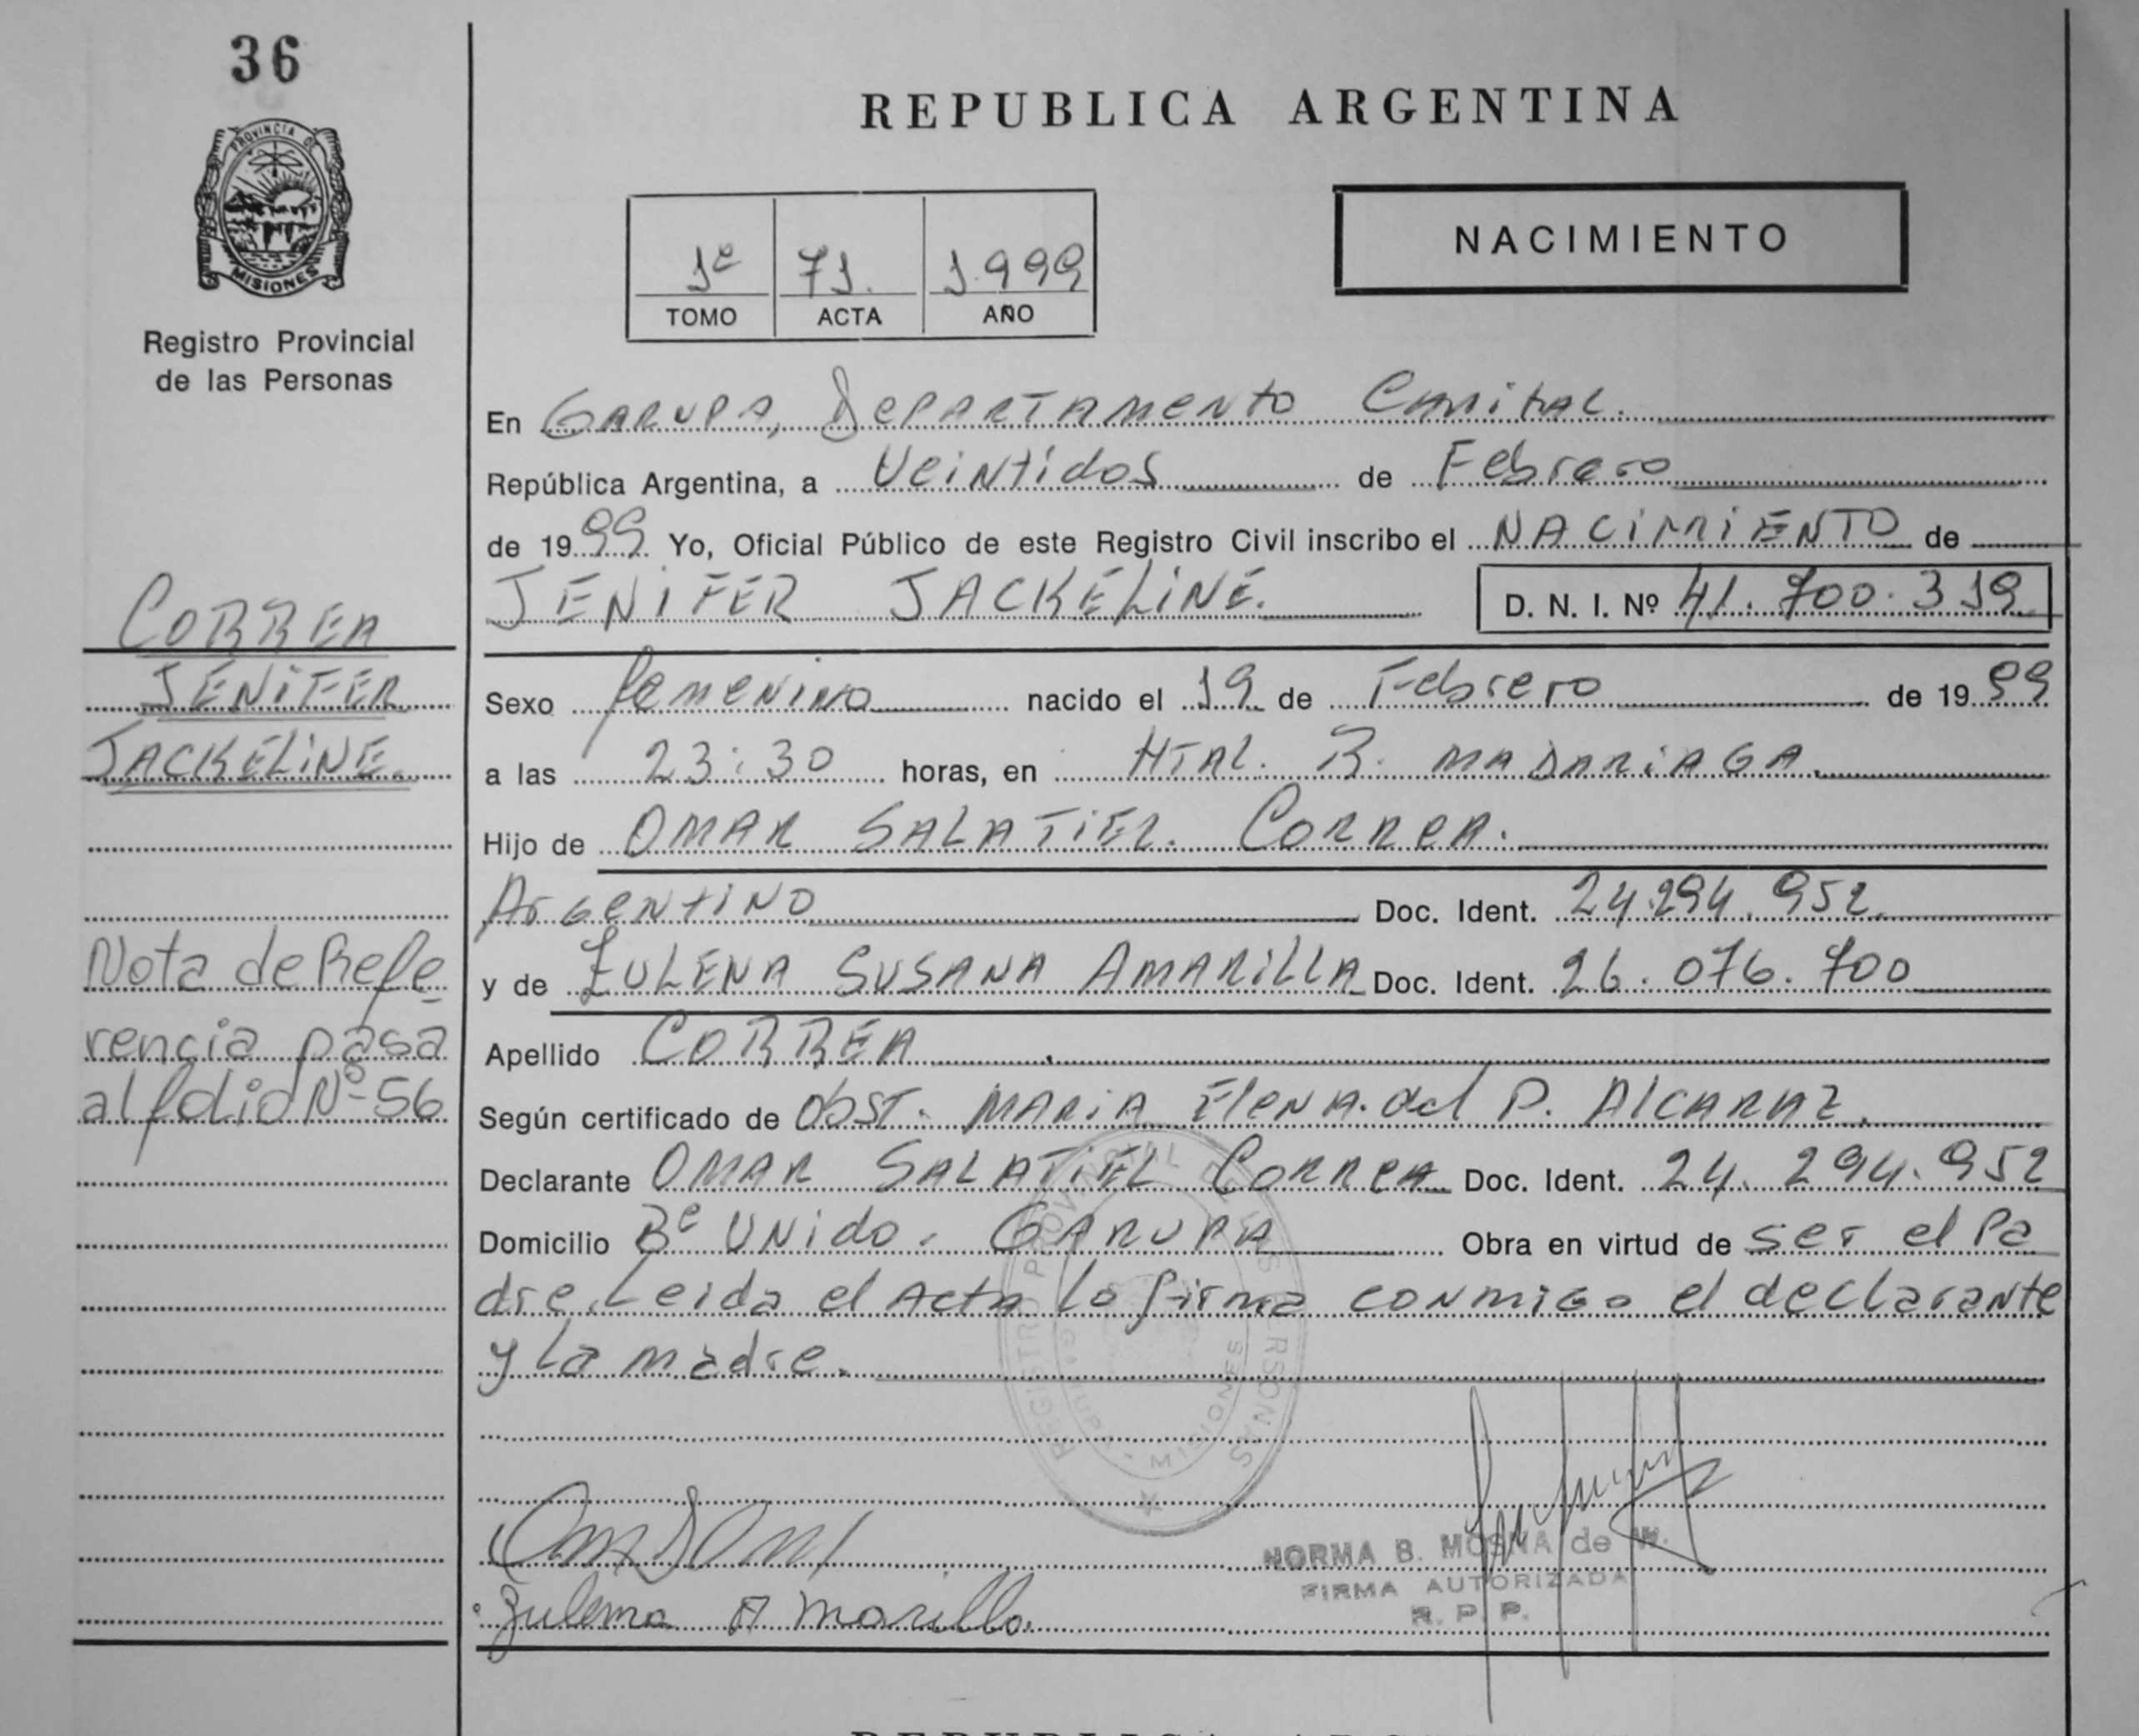 36
PROVINCIA DE
MISIONES
Registro Provincial
de las Personas
CORREA
JENIFER
JACKELINE.
Nota de Refe
rencia pasa
al folio Nº 56
REPUBLICA ARGENTINA
1º 71. 1.999
TOMO ACTA AÑO
NACIMIENTO
En GARUPA, Departamento Capital.
República Argentina, a Veintidos de Febrero
de 1999 Yo, Oficial Público de este Registro Civil inscribo el NACIMIENTO de
JENIFER JACKELINE. D. N. I. Nº 41.700.319
Sexo femenino nacido el 19 de Febrero de 1999
a las 23:30 horas, en HTAL. R. MADARIAGA.
Hijo de OMAR SALATIEL. CORREA.
Argentino Doc. Ident. 24.294.952
y de ZULEMA SUSANA AMARILLA Doc. Ident. 26.076.700
Apellido CORREA
Según certificado de Obst. MARIA Elena del P. Alcaraz.
Declarante OMAR SALATIEL CORREA Doc. Ident. 24.294.952
Domicilio Bº Unido. GARUPA Obra en virtud de ser el Pa
dre. Leida el Acta lo firma conmigo el declarante
y la madre.
REGISTRO PROVINCIAL DE LAS PERSONAS
GARUPA - MISIONES
NORMA B. MOSNA de W.
FIRMA AUTORIZADA
R. P. P.
Zulema Amarilla.
REPUBLICA ARGENTINA